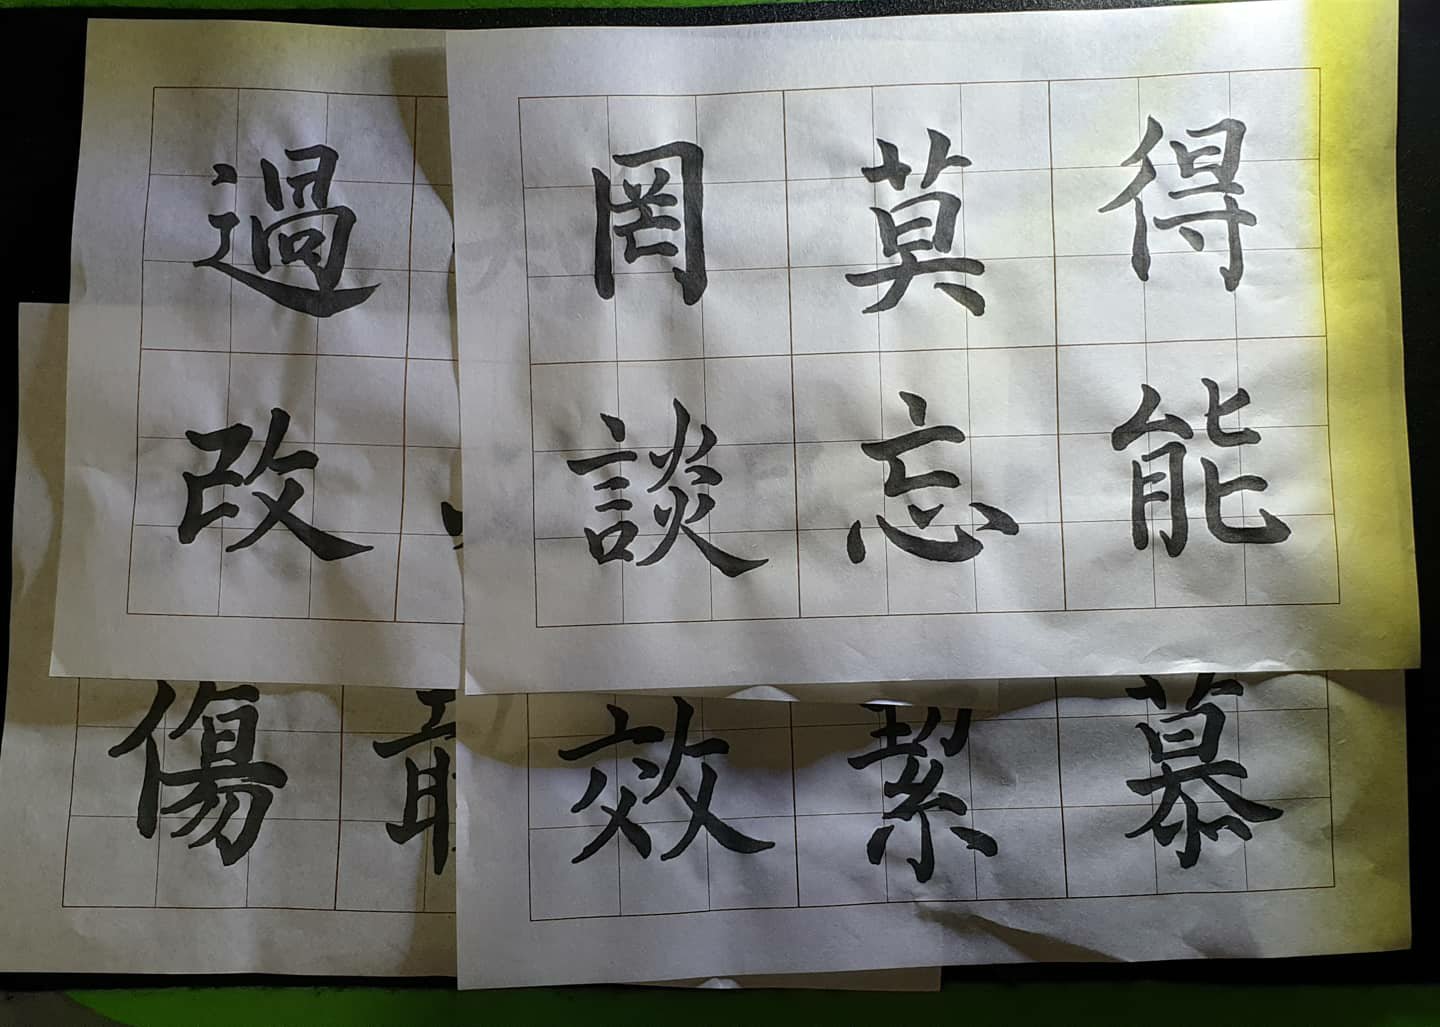 得能
莫忘
罔談
過改
慕
絜
效
傷